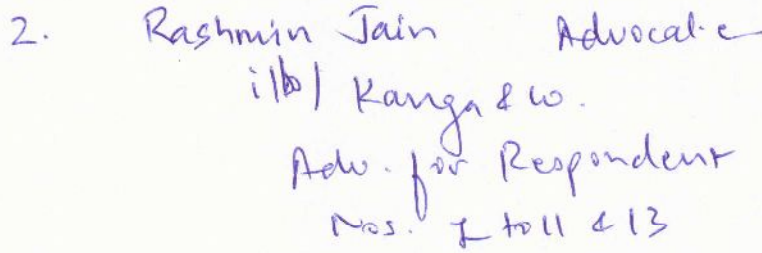 2. Rashmin Jain Advocate
i/b/ Kanga & Co.
Adv. for Respondent
Nos. to 11 & 13